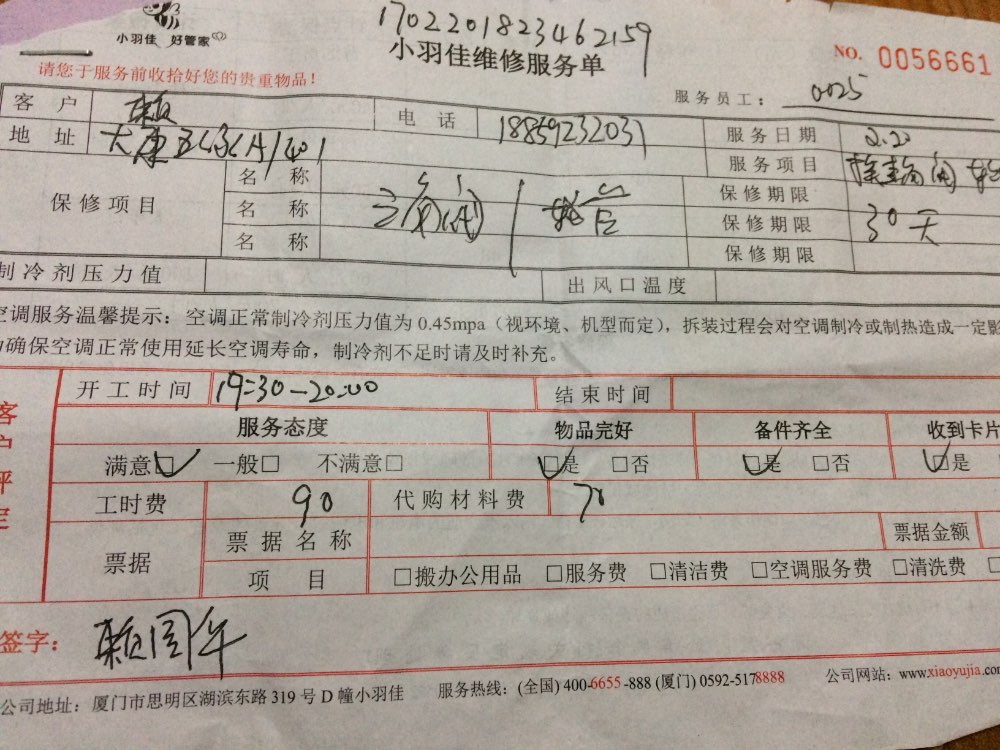 小羽佳 好管家
1702201823462159
小羽佳维修服务单
NO. 0056661
请您于服务前收拾好您的贵重物品！
服务员工： 0025
客户 赖 电话 18859232031 服务日期 2.20
地址 401 服务项目
保修项目 名称 保修期限
名称 保修期限 30天
名称 保修期限
制冷剂压力值 出风口温度
空调服务温馨提示：空调正常制冷剂压力值为 0.45mpa（视环境、机型而定），拆装过程会对空调制冷或制热造成一定影
确保空调正常使用延长空调寿命，制冷剂不足时请及时补充。
客户评定
开工时间 19:30-20:00 结束时间
服务态度 物品完好 备件齐全 收到卡片
满意□ 一般□ 不满意□ □是 □否 □是 □否 □是
工时费 90 代购材料费 70
票据 票据名称 票据金额
项目 □搬办公用品 □服务费 □清洁费 □空调服务费 □清洗费
签字： 赖国年
公司地址：厦门市思明区湖滨东路 319 号 D 幢小羽佳 服务热线：(全国) 400-6655-888 (厦门) 0592-5178888 公司网站：www.xiaoyujia.com